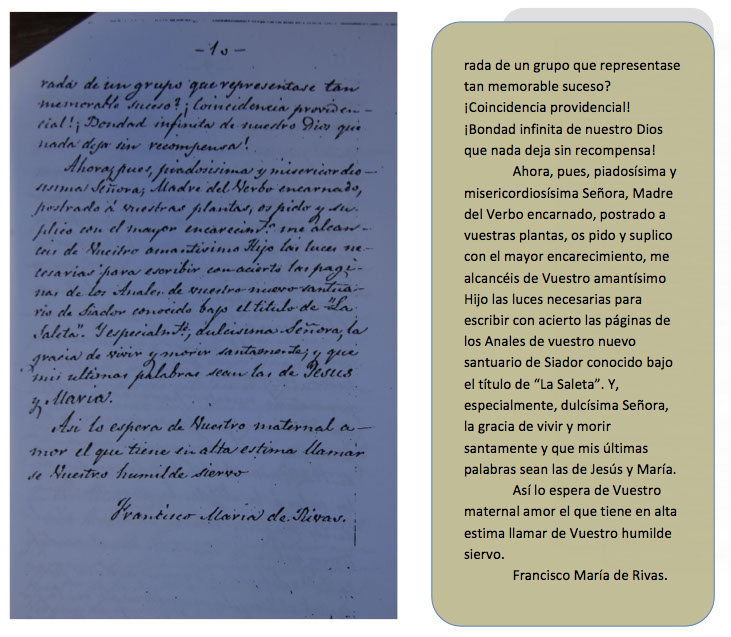 -10-
rada de un grupo que representase tan
memorable suceso? ¡Coincidencia providen-
cial! ¡Bondad infinita de nuestro Dios que
nada deja sin recompensa!
Ahora, pues, piadosisima y misericordio-
sisima Señora, Madre del Verbo encarnado,
postrado á vuestras plantas, os pido y su-
plico con el mayor encarecimto. me alcan-
ceis de Vuestro amantisimo Hijo las luces ne-
cesarias para escribir con acierto las pagi-
nas de los Anales de vuestro nuevo santua-
rio de Siador conocido bajo el titulo de "La
Saleta". Y especialmte., dulcisima Señora, la
gracia de vivir y morir santamente; y que
mis ultimas palabras sean las de Jesus
y Maria.
Asi lo espera de Vuestro maternal a-
mor el que tiene en alta estima llamar
se Vuestro humilde siervo
Francisco Maria de Rivas.
rada de un grupo que representase
tan memorable suceso?
¡Coincidencia providencial!
¡Bondad infinita de nuestro Dios
que nada deja sin recompensa!
Ahora, pues, piadosísima y
misericordiosísima Señora, Madre
del Verbo encarnado, postrado a
vuestras plantas, os pido y suplico
con el mayor encarecimiento, me
alcancéis de Vuestro amantísimo
Hijo las luces necesarias para
escribir con acierto las páginas de
los Anales de vuestro nuevo
santuario de Siador conocido bajo
el título de “La Saleta”. Y,
especialmente, dulcísima Señora,
la gracia de vivir y morir
santamente y que mis últimas
palabras sean las de Jesús y María.
Así lo espera de Vuestro
maternal amor el que tiene en alta
estima llamar de Vuestro humilde
siervo.
Francisco María de Rivas.